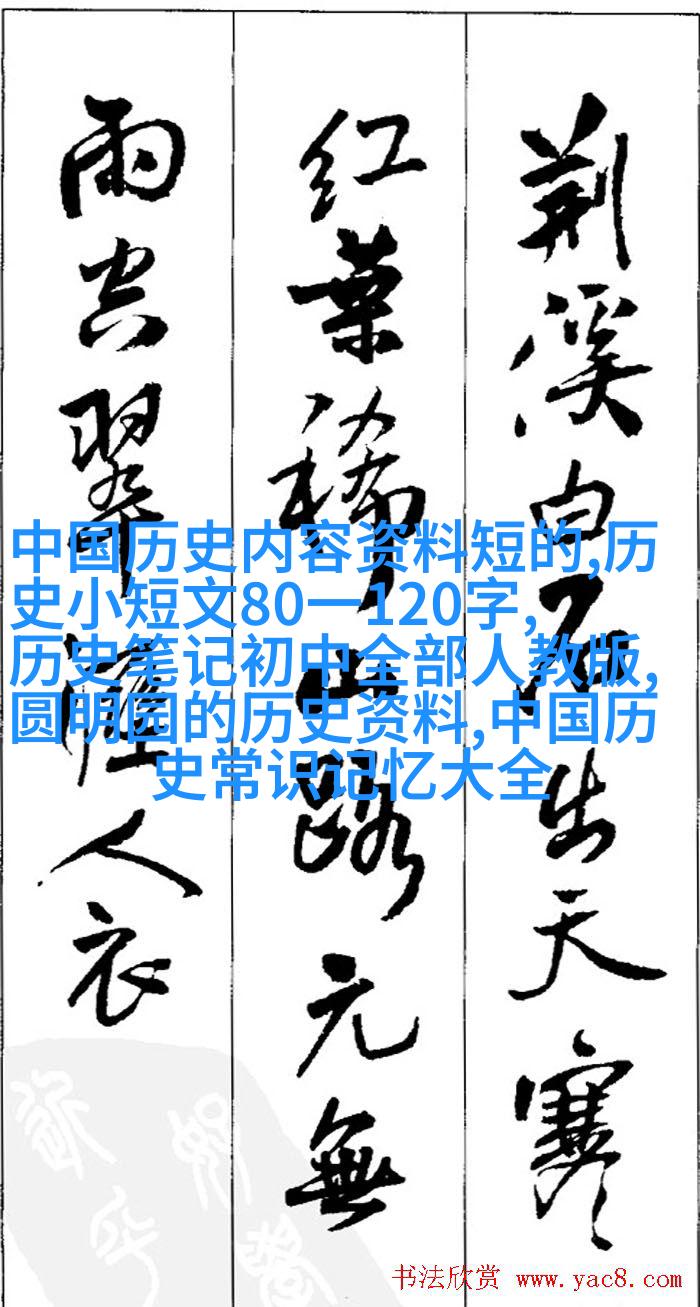 荆溪白石出天寒
红葉稀山路元無
雨空翠濕人衣
中国历史内容资料短的,历
史小短文80一120字,
历史笔记初中全部人教版,
圆明园的历史资料,中国历
史常识记忆大全
书法欣赏 www.yac8.com